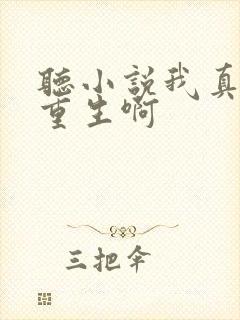 聽小說我真
重生啊
三把伞